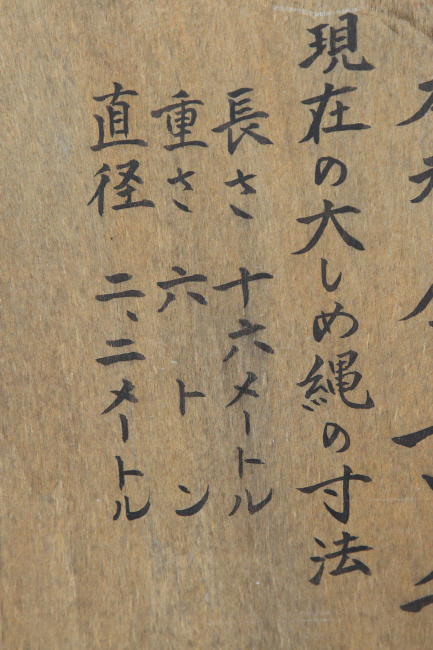 現在の大しめ縄の寸法
長さ 十六メートル
重さ 六トン
直径 二、二メートル